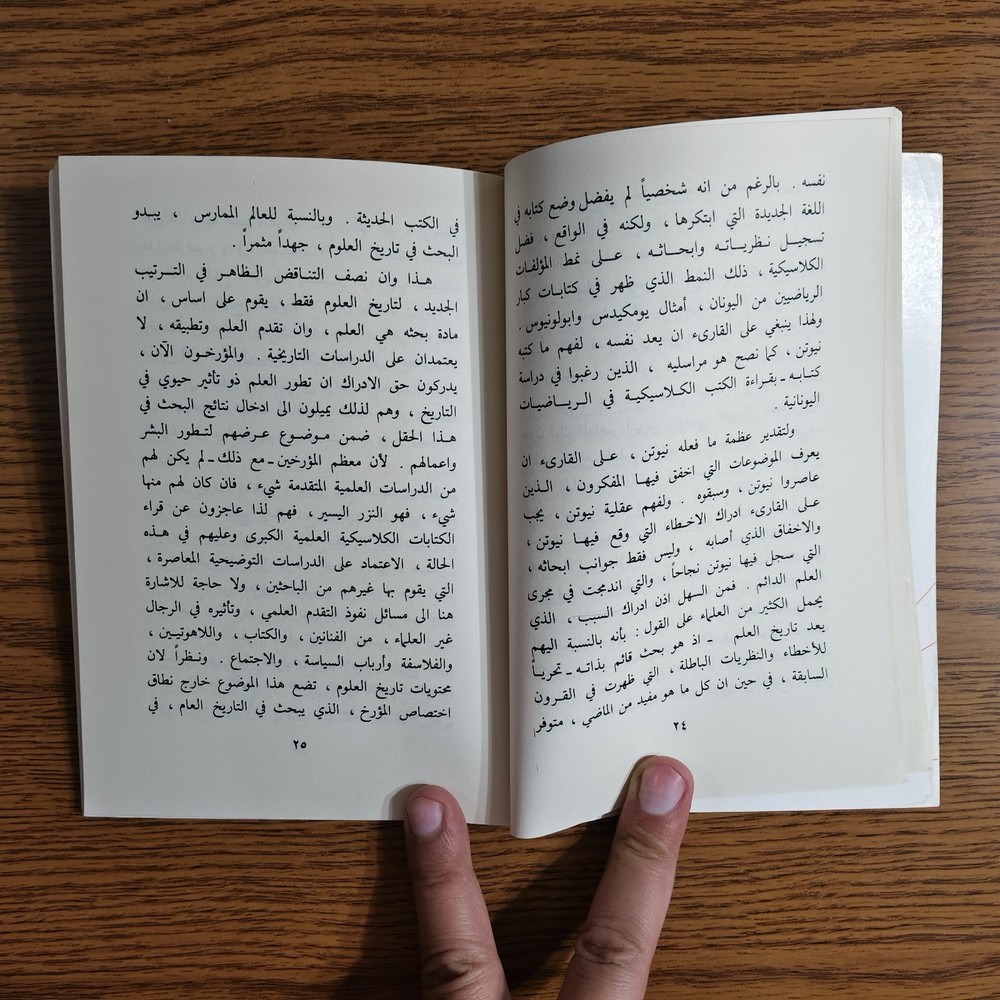 نفسه . بالرغم من انه شخصياً لم يفضل وضع كتابه في
اللغة الجديدة التي ابتكرها ، ولكنه في الواقع ، فضل
تسجيل نظرياته وابحاثه ، على نمط المؤلفات
الكلاسيكية ، ذلك النمط الذي ظهر في كتابات كبار
الرياضيين من اليونان ، أمثال يومكيدس وابولونيوس .
ولهذا ينبغي على القارىء ان يعد نفسه ، لفهم ما كتبه
نيوتن ، كما نصح هو مراسليه ، الذين رغبوا في دراسة
كتابه ـ بقراءة الكتب الكلاسيكية في الرياضيات
اليونانية .
ولتقدير عظمة ما فعله نيوتن ، على القارىء ان
يعرف الموضوعات التي اخفق فيها المفكرون ، الذين
عاصروا نيوتن ، وسبقوه . ولفهم عقلية نيوتن ، يجب
على القارىء ادراك الاخطاء التي وقع فيها نيوتن ،
والاخفاق الذي أصابه ، وليس فقط جوانب ابحاثه ،
التي سجل فيها نيوتن نجاحاً ، والتي اندمجت في مجرى
العلم الدائم . فمن السهل اذن ادراك السبب ، الذي
يحمل الكثير من العلماء على القول : بأنه بالنسبة اليهم
يعد تاريخ العلم ـ اذ هو بحث قائم بذاته ـ تحرياً
للأخطاء والنظريات الباطلة ، التي ظهرت في القرون
السابقة ، في حين ان كل ما هو مفيد من الماضي ، متوفر
٢٤
في الكتب الحديثة . وبالنسبة للعالم الممارس ، يبدو
البحث في تاريخ العلوم ، جهداً مثمراً .
هذا وان نصف التناقض الظاهر في الترتيب
الجديد ، لتاريخ العلوم فقط ، يقوم على اساس ، ان
مادة بحثه هي العلم ، وان تقدم العلم وتطبيقه ، لا
يعتمدان على الدراسات التاريخية . والمؤرخون الآن ،
يدركون حق الادراك ان تطور العلم ذو تأثير حيوي في
التاريخ ، وهم لذلك يميلون الى ادخال نتائج البحث في
هذا الحقل ، ضمن موضوع عرضهم لتطور البشر
واعمالهم . لأن معظم المؤرخين ـ مع ذلك ـ لم يكن لهم
من الدراسات العلمية المتقدمة شيء ، فان كان لهم منها
شيء ، فهو النزر اليسير ، فهم لذا عاجزون عن قراء
الكتابات الكلاسيكية العلمية الكبرى وعليهم في هذه
الحالة ، الاعتماد على الدراسات التوضيحية المعاصرة ،
التي يقوم بها غيرهم من الباحثين ، ولا حاجة للاشارة
هنا الى مسائل نفوذ التقدم العلمي ، وتأثيره في الرجال
غير العلماء ، من الفنانين ، والكتاب ، واللاهوتيين ،
والفلاسفة وأرباب السياسة ، والاجتماع . ونظراً لان
محتويات تاريخ العلوم ، تضع هذا الموضوع خارج نطاق
اختصاص المؤرخ ، الذي يبحث في التاريخ العام ، في
٢٥